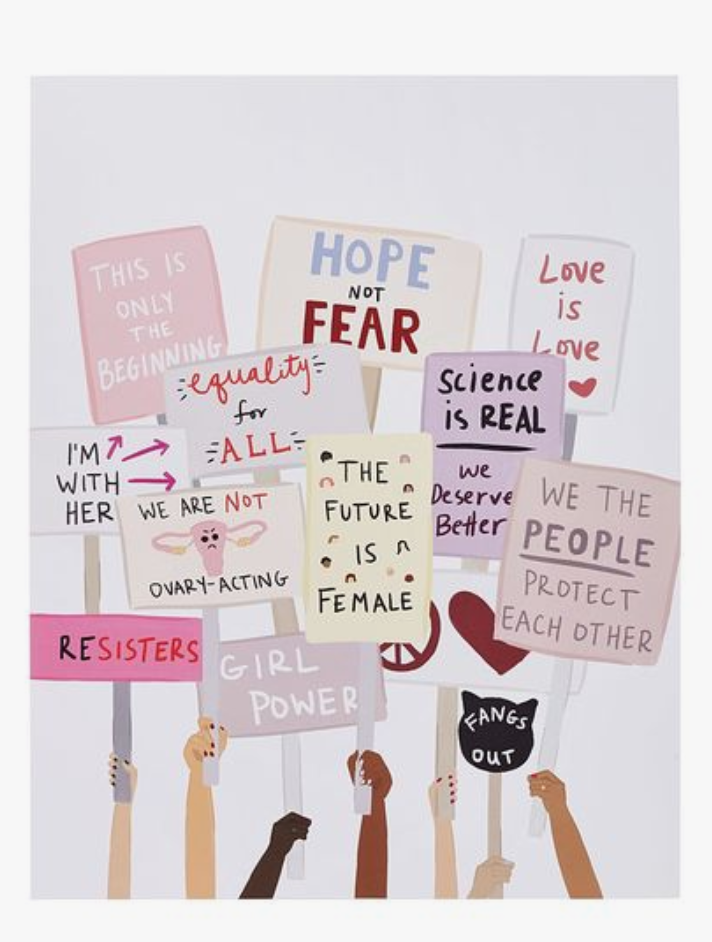 THIS IS
ONLY
THE
BEGINNING
HOPE
NOT
FEAR
Love
is
Love
equality
for
ALL
science
is REAL
we
Deserve
Better
I'M
WITH
HER
WE ARE NOT
OVARY-ACTING
THE
FUTURE
IS
FEMALE
WE THE
PEOPLE
PROTECT
EACH OTHER
RESISTERS
GIRL
POWER
FANGS
OUT